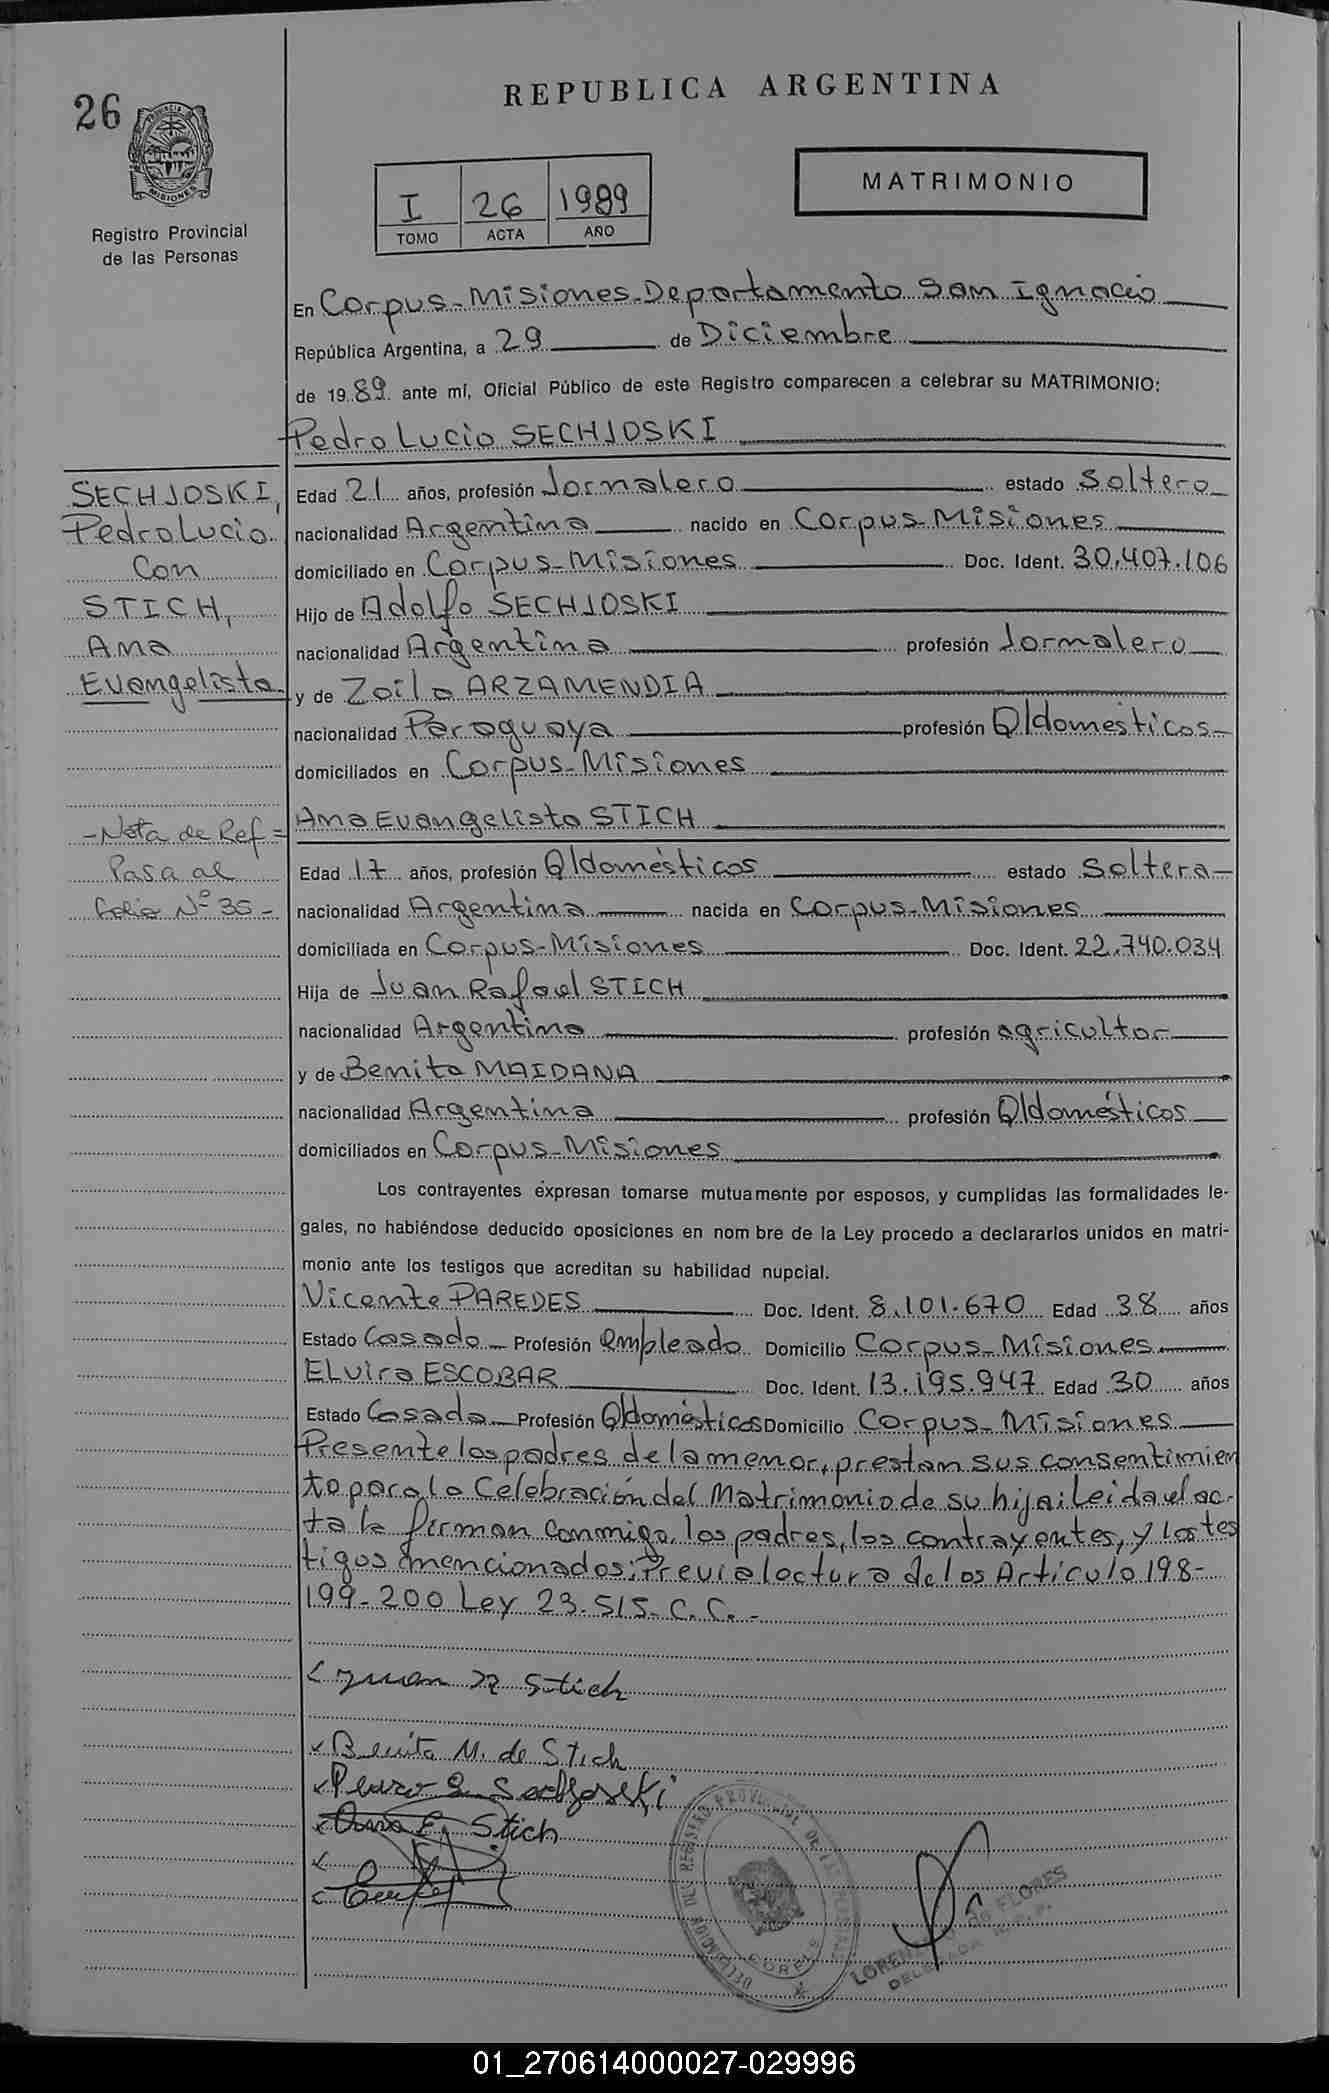 26
REPUBLICA ARGENTINA
PROVINCIA
MISIONES
Registro Provincial
de las Personas
I 26 1989
TOMO ACTA AÑO
MATRIMONIO
En Corpus-Misiones-Departamento San Ignacio
República Argentina, a 29 de Diciembre
de 1989 ante mí, Oficial Público de este Registro comparecen a celebrar su MATRIMONIO:
Pedro Lucio SECHJOSKI
SECHJOSKI,
Pedro Lucio
Con
STICH,
Ana
Evangelista
Edad 21 años, profesión Jornalero estado Soltero
nacionalidad Argentina nacido en Corpus-Misiones
domiciliado en Corpus-Misiones Doc. Ident. 30.407.106
Hijo de Adolfo SECHJOSKI
nacionalidad Argentina profesión Jornalero
y de Zoila ARZAMENDIA
nacionalidad Paraguaya profesión Q/domésticos
domiciliados en Corpus-Misiones
Ana Evangelista STICH
-Nota de Ref=
Pasa al
folio Nº 35-
Edad 17 años, profesión Q/domésticos estado Soltera
nacionalidad Argentina nacida en Corpus-Misiones
domiciliada en Corpus-Misiones Doc. Ident. 22.740.034
Hija de Juan Rafael STICH
nacionalidad Argentina profesión agricultor
y de Benita MAIDANA
nacionalidad Argentina profesión Q/domésticos
domiciliados en Corpus-Misiones
Los contrayentes expresan tomarse mutuamente por esposos, y cumplidas las formalidades le-
gales, no habiéndose deducido oposiciones en nom bre de la Ley procedo a declararlos unidos en matri-
monio ante los testigos que acreditan su habilidad nupcial.
Vicente PAREDES Doc. Ident. 8.101.670 Edad 38 años
Estado Casado Profesión empleado Domicilio Corpus-Misiones
ELvira ESCOBAR Doc. Ident. 13.195.947 Edad 30 años
Estado Casada Profesión Q/domésticos Domicilio Corpus-Misiones
Presente los padres de la menor, prestan sus consentimien
to para la Celebración del Matrimonio de su hija; Leida el ac-
ta la firman conmigo, los padres, los contrayentes, y los tes
tigos mencionados; Previa lectura de los Artículo 198-
199-200 Ley 23.515-C.C.-
Juan R Stich
Benita M. de Stich
Pedro L Sechjoski
Ana E Stich
DELEGACION DEL REGISTRO PROVINCIAL DE LAS PERSONAS
CORPUS
DE FLORES
DELEGADA R.P.P.
01_270614000027-029996